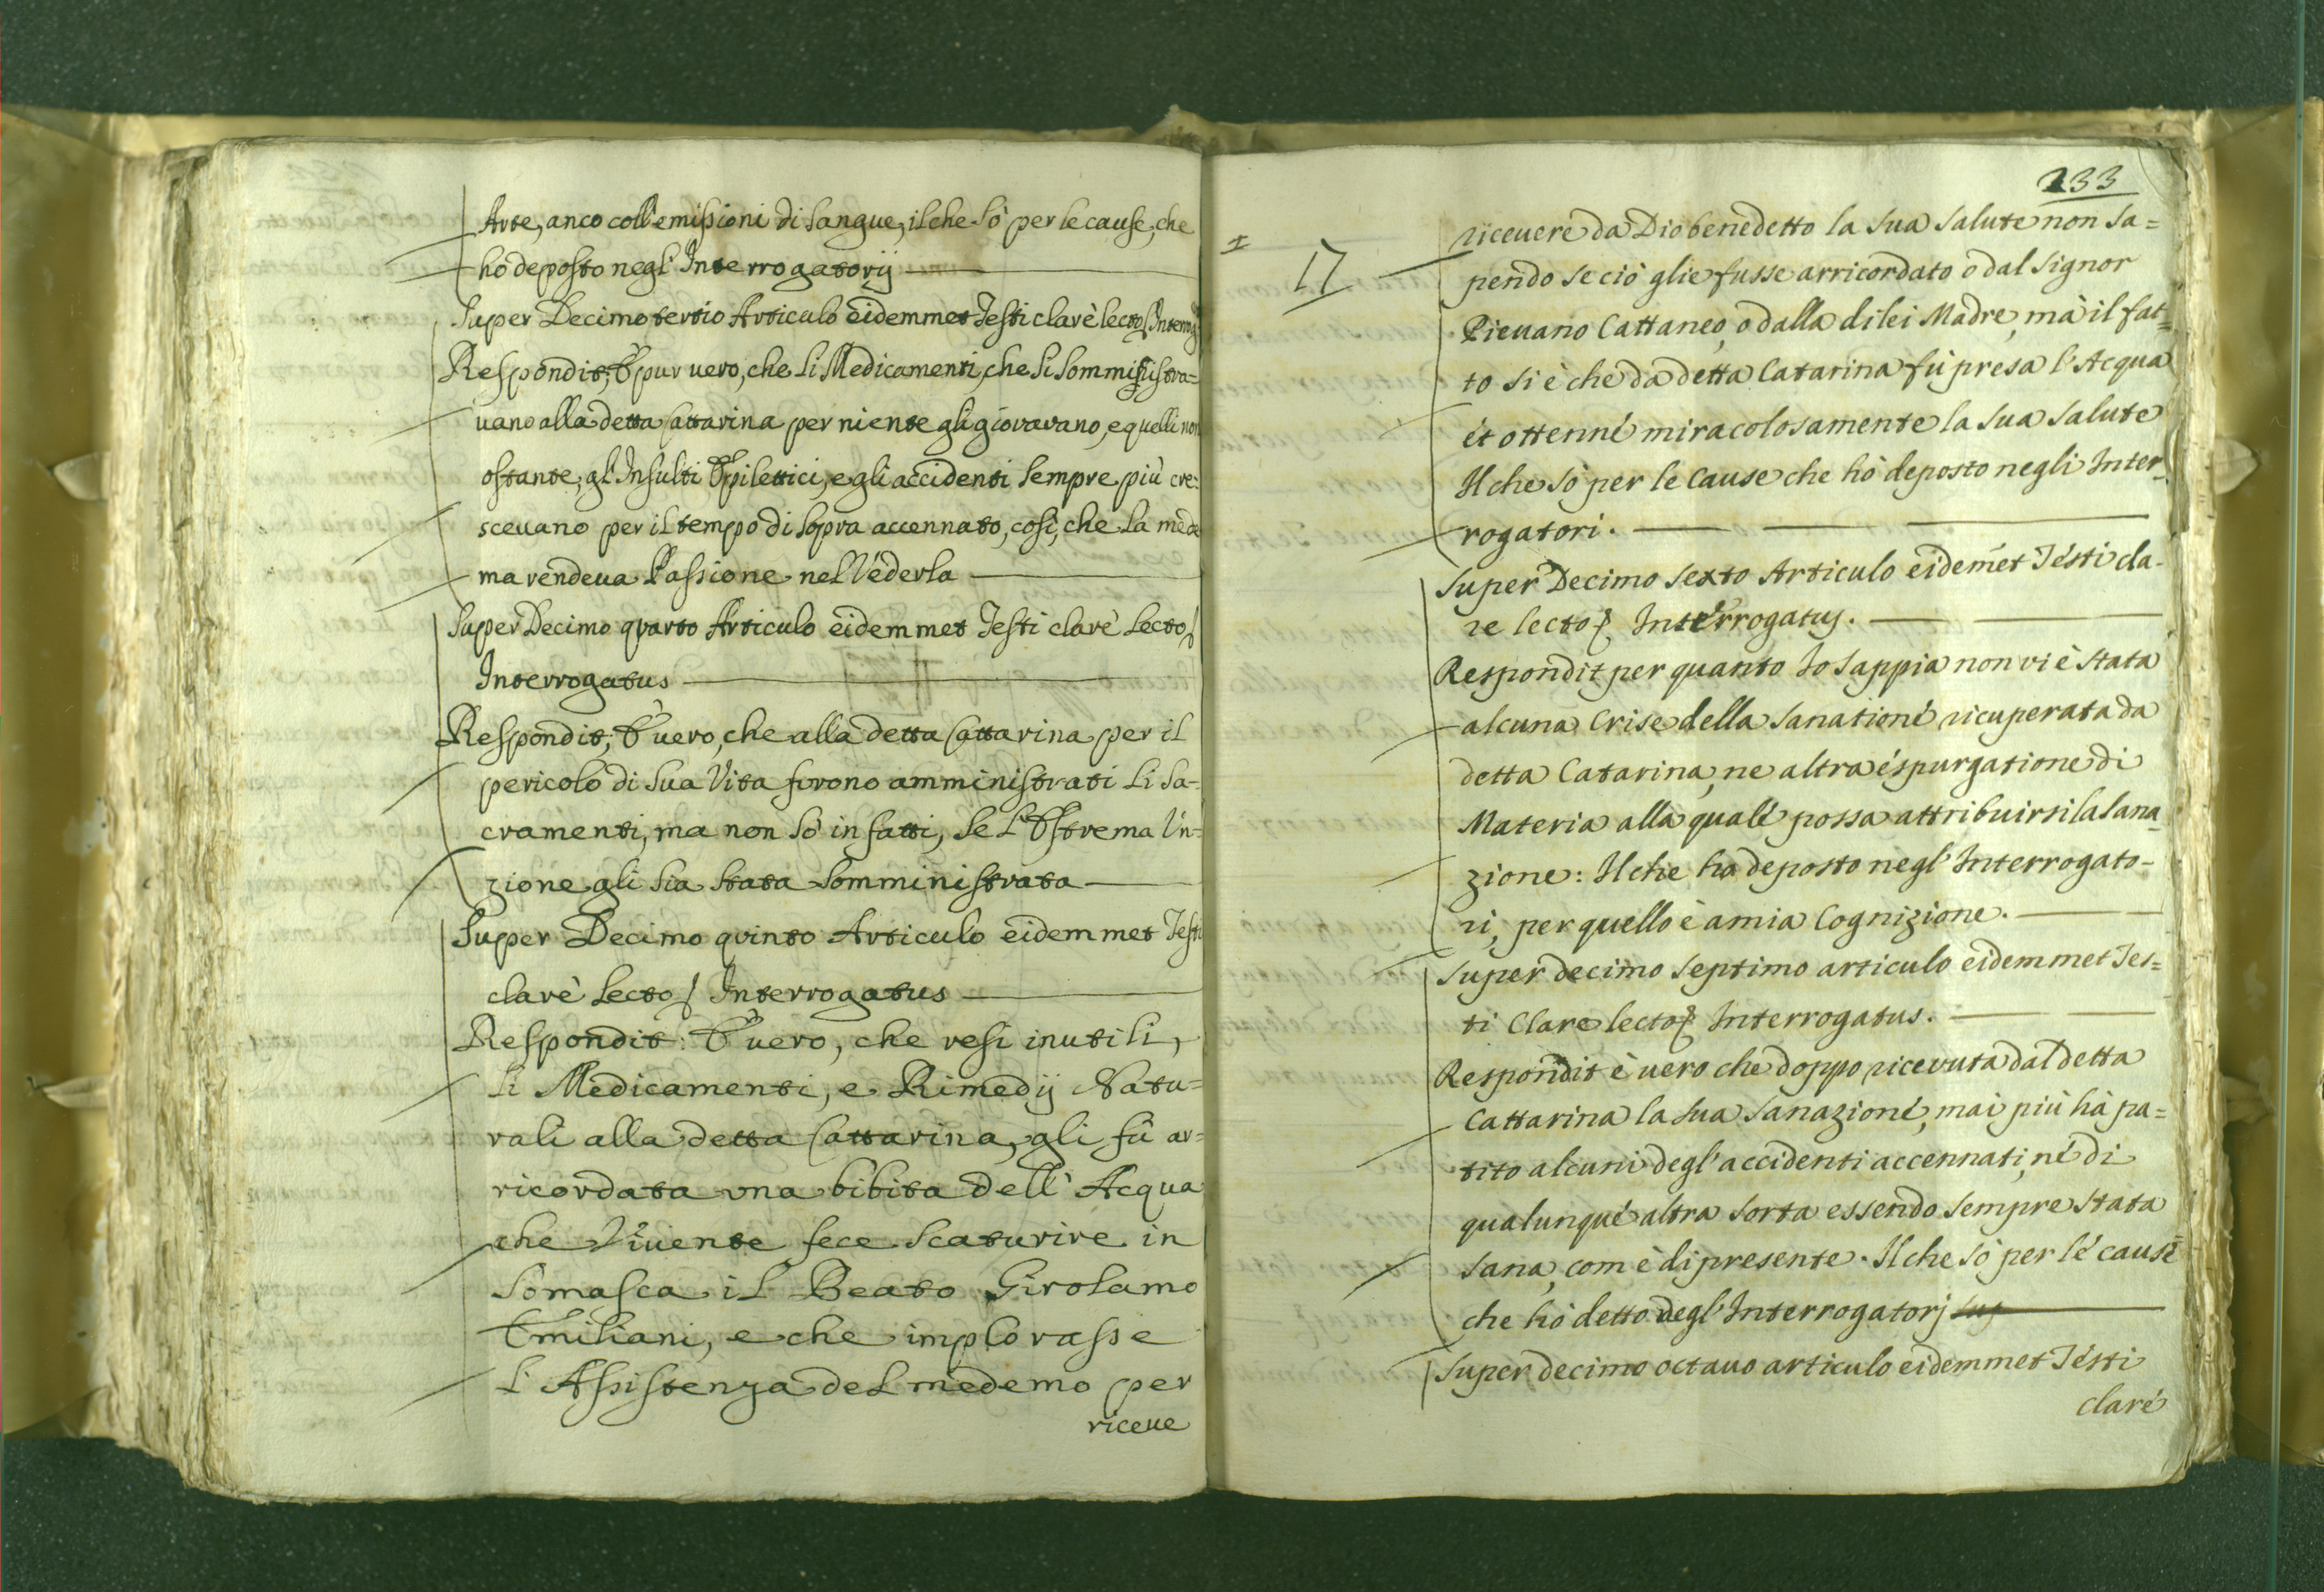 Arte, anco coll'emissioni di Sangue, il che sò per le cause, che
hò deposto negl' Interrogatorij
Super Decimo tertio Articulo eidemmet Testi clarè lecto, Interrog.
Respondit; È pur uero, che li Medicamenti, che si somministra=
uano alla detta Cattarina per niente gli giovavano, e quelli non
ostante, gl' Insulti Epilettici, e gli accidenti sempre più cre=
sceuano per il tempo di sopra accennato, cosi, che la mede
ma rendeua Passione nel Vederla
Super Decimo quarto Articulo eidemmet Testi clarè lecto,
Interrogatus
Respondit; È uero, che alla detta Cattarina per il
pericolo di sua Vita furono amministrati li Sa-
cramenti, ma non sò in fatti, se l'Estrema Un-
zione gli sia stata somministrata
Super Decimo quinto Articulo eidemmet Testi
clarè lecto, Interrogatus
Respondit: È uero, che resi inutili,
li Medicamenti, e Rimedij Natu=
rali alla detta Cattarina, gli fù ar=
ricordata una bibita dell' Acqua
che Viuente fece scaturire in
Somasca il Beato Girolamo
Emiliani, e che implorasse
l'Assistenza del medemo per
riceue
133
17
riceuere da Dio benedetto la sua salute non sa=
pendo se ciò glie fusse arricordato o dal Signor
Pieuano Cattaneo, o dalla di lei Madre, mà il fat=
to si è che da detta Catarina fù presa l'Acqua
èt ottenné miracolosamente la sua salute
Il che sò per le Cause che hò deposto negli Inter-
rogatori.
Super Decimo Sexto Articulo eidemét Tésti cla-
re lecto, Interrogatus.
Respondit per quanto Io sappia non vi è stata
alcuna Crise della Sanationé ricuperata da
detta Catarina, ne altra éspurgatione di
Materia alla qualé possa attribuirsi la Sana-
zione: Il che ho deposto negl' Interrogato-
ri, per quello è a mia Cognizione.
Super decimo septimo articulo eidemmet Tes=
ti Clare lecto, Interrogatus.
Respondit è uero che doppo ricevuta dal detta
Cattarina la sua Sanazioné, mai più hà pa=
tito alcuni degl'accidenti accennati, né di
qualunqué altra sorta essendo sempre stata
Sana, com è di presente. Il che sò per lé causè
che hò detto degl' Interrogatorj Sup
Super decimo octauo articulo eidemmet Tésti
claré